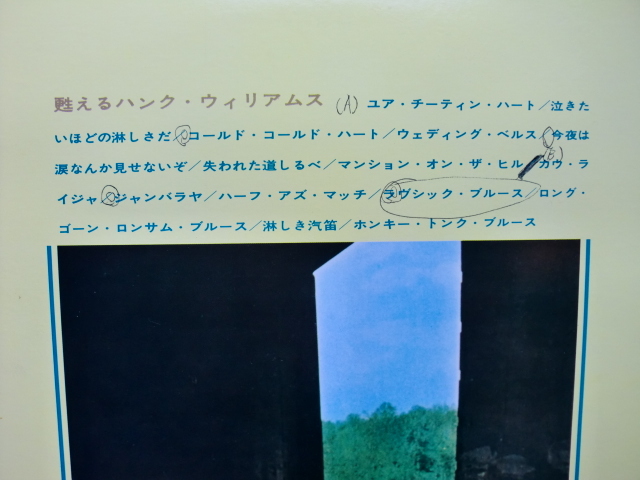 甦えるハンク・ウィリアムス (A) ユア・チーティン・ハート/泣きた
いほどの淋しさだ/コールド・コールド・ハート/ウェディング・ベルス/今夜は
涙なんか見せないぞ/失われた道しるべ/マンション・オン・ザ・ヒル/(B)カウ・ラ
イジャ/ジャンバラヤ/ハーフ・アズ・マッチ/ラヴシック・ブルース/ロング・
ゴーン・ロンサム・ブルース/淋しき汽笛/ホンキー・トンク・ブルース